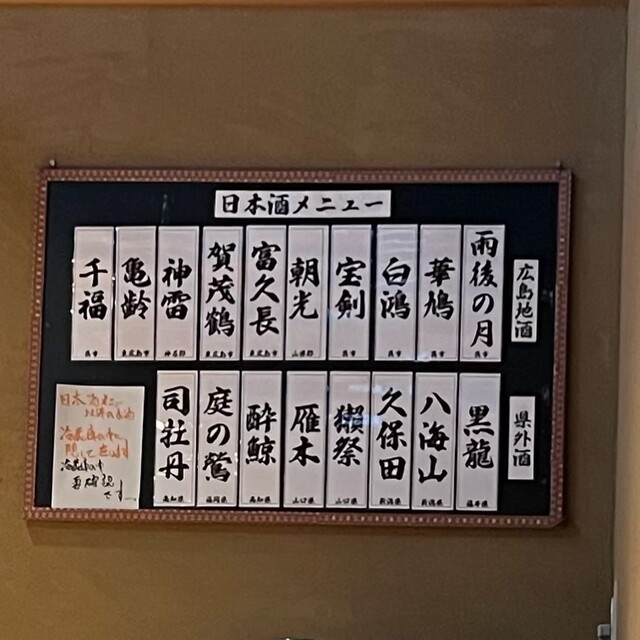 日本酒メニュー
広島地酒
雨後の月
呉市
華鳩
呉市
白鴻
呉市
宝剣
呉市
朝光
山県郡
富久長
東広島市
賀茂鶴
東広島市
神雷
神石郡
亀齢
東広島市
千福
呉市
県外酒
黒龍
福井県
八海山
新潟県
久保田
新潟県
獺祭
山口県
雁木
山口県
酔鯨
高知県
庭の鶯
福岡県
司牡丹
高知県
冷蔵庫の中